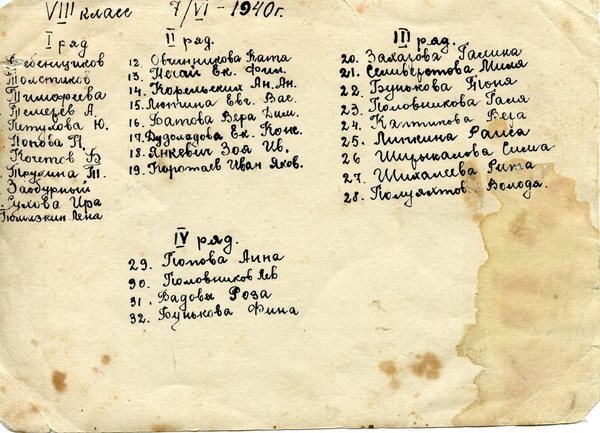 VIII класс 7/VI - 1940г.
I ряд
Гребенщиков
Толстиков
Тимофеева
Телегев А.
Петухова Ю.
Попова П.
Кочетов В
Трухина Т.
Заобурный
Сухова Ира
Тюлязкин Лена
II ряд.
12. Овчинникова Катя
13. Пегай Ек. Фил.
14. Корельских Ан. Ан.
15. Лютина Евг. Вас.
16. Батова Вера Дим.
17. Дудоладова Ек. Конс.
18. Янкевич Зоя Ив.
19. Коротаев Иван Яков.
III ряд.
20. Захарова Галина
21. Селиверстова Миля
22. Бунькова Тоня
23. Половникова Галя
24. Каптипова Вера
25. Липкина Раиса
26 Ширыкалова Сима
27. Шихалеева Рита
28. Полуяхтов Володя.
IV ряд.
29. Попова Анна
30. Половников Лев
31. Вадовы Роза
32. Бунькова Фина